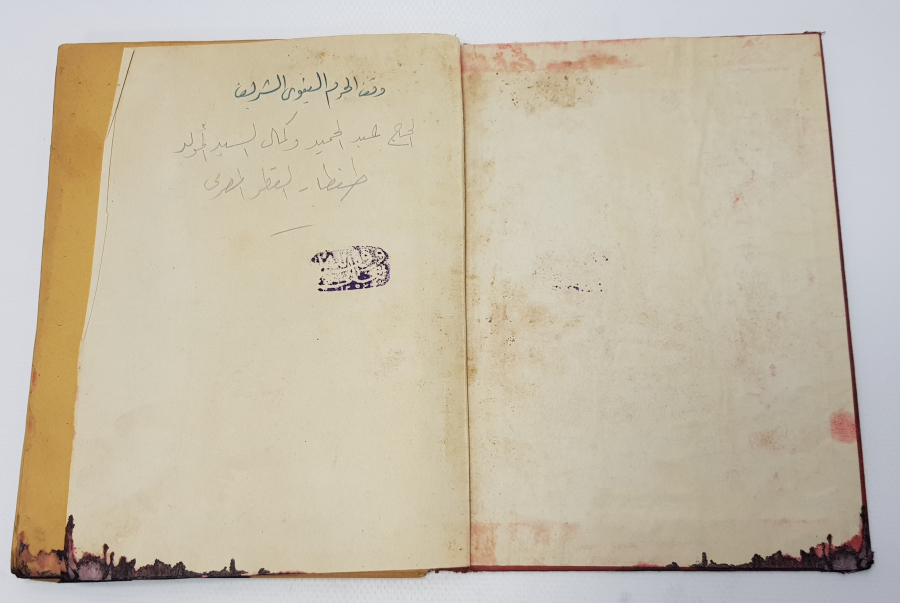 وقف الحرم النبوي الشريف
الحاج عبد الحميد وكمال السيد
طنطا - القطر المصري